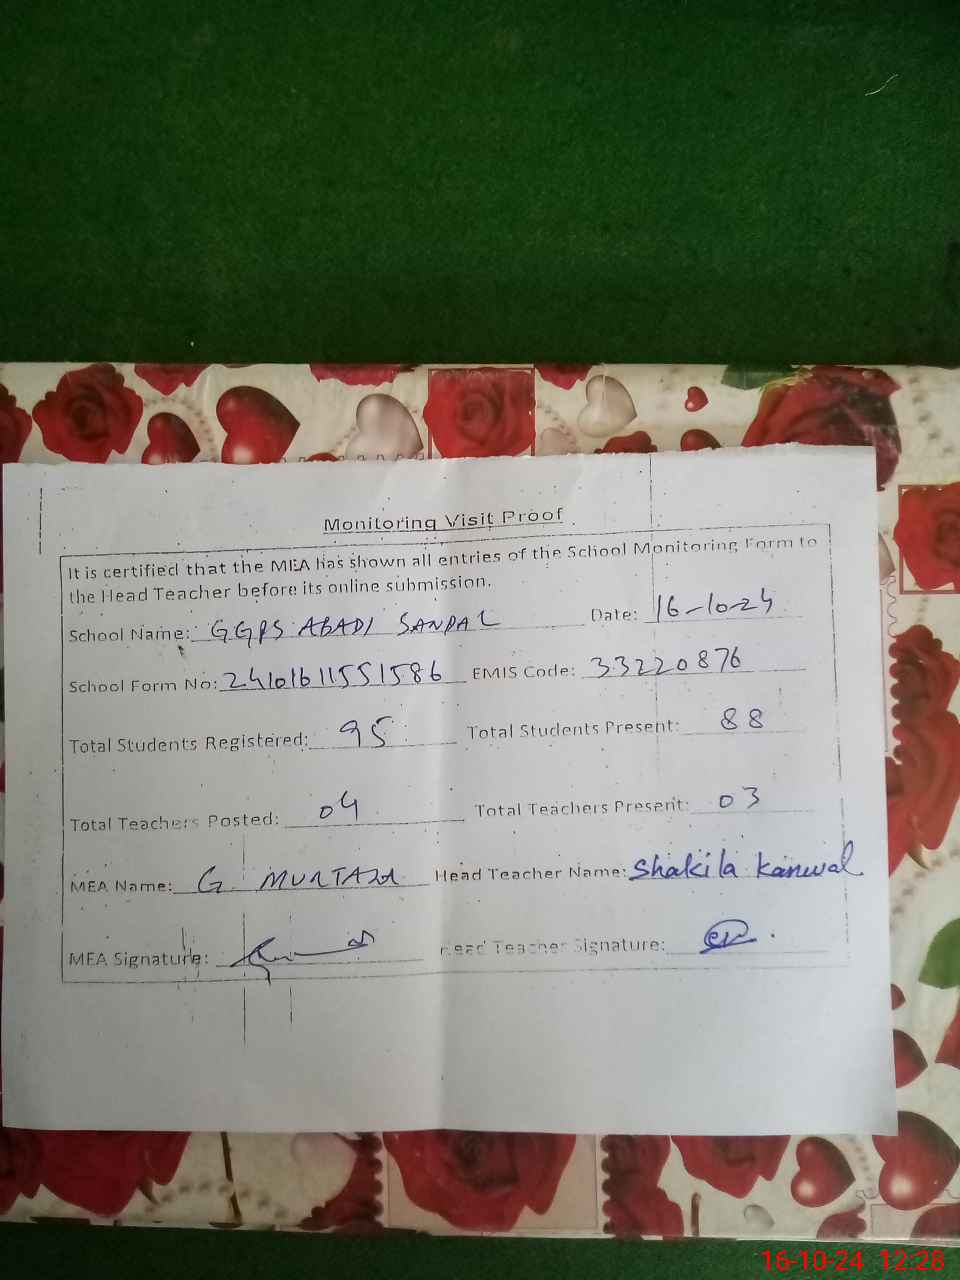 Monitoring Visit Proof
It is certified that the MEA has shown all entries of the School Monitoring Form to
the Head Teacher before its online submission.
School Name: GGPS ABADI SANPAL Date: 16-10-24
School Form No: 24101611551586 EMIS Code: 33220876
Total Students Registered: 95 Total Students Present: 88
Total Teachers Posted: 04 Total Teachers Present: 03
MEA Name: G. MURTAZA Head Teacher Name: Shakila Kanwal
MEA Signature: Head Teacher Signature:
16-10-24 12:28